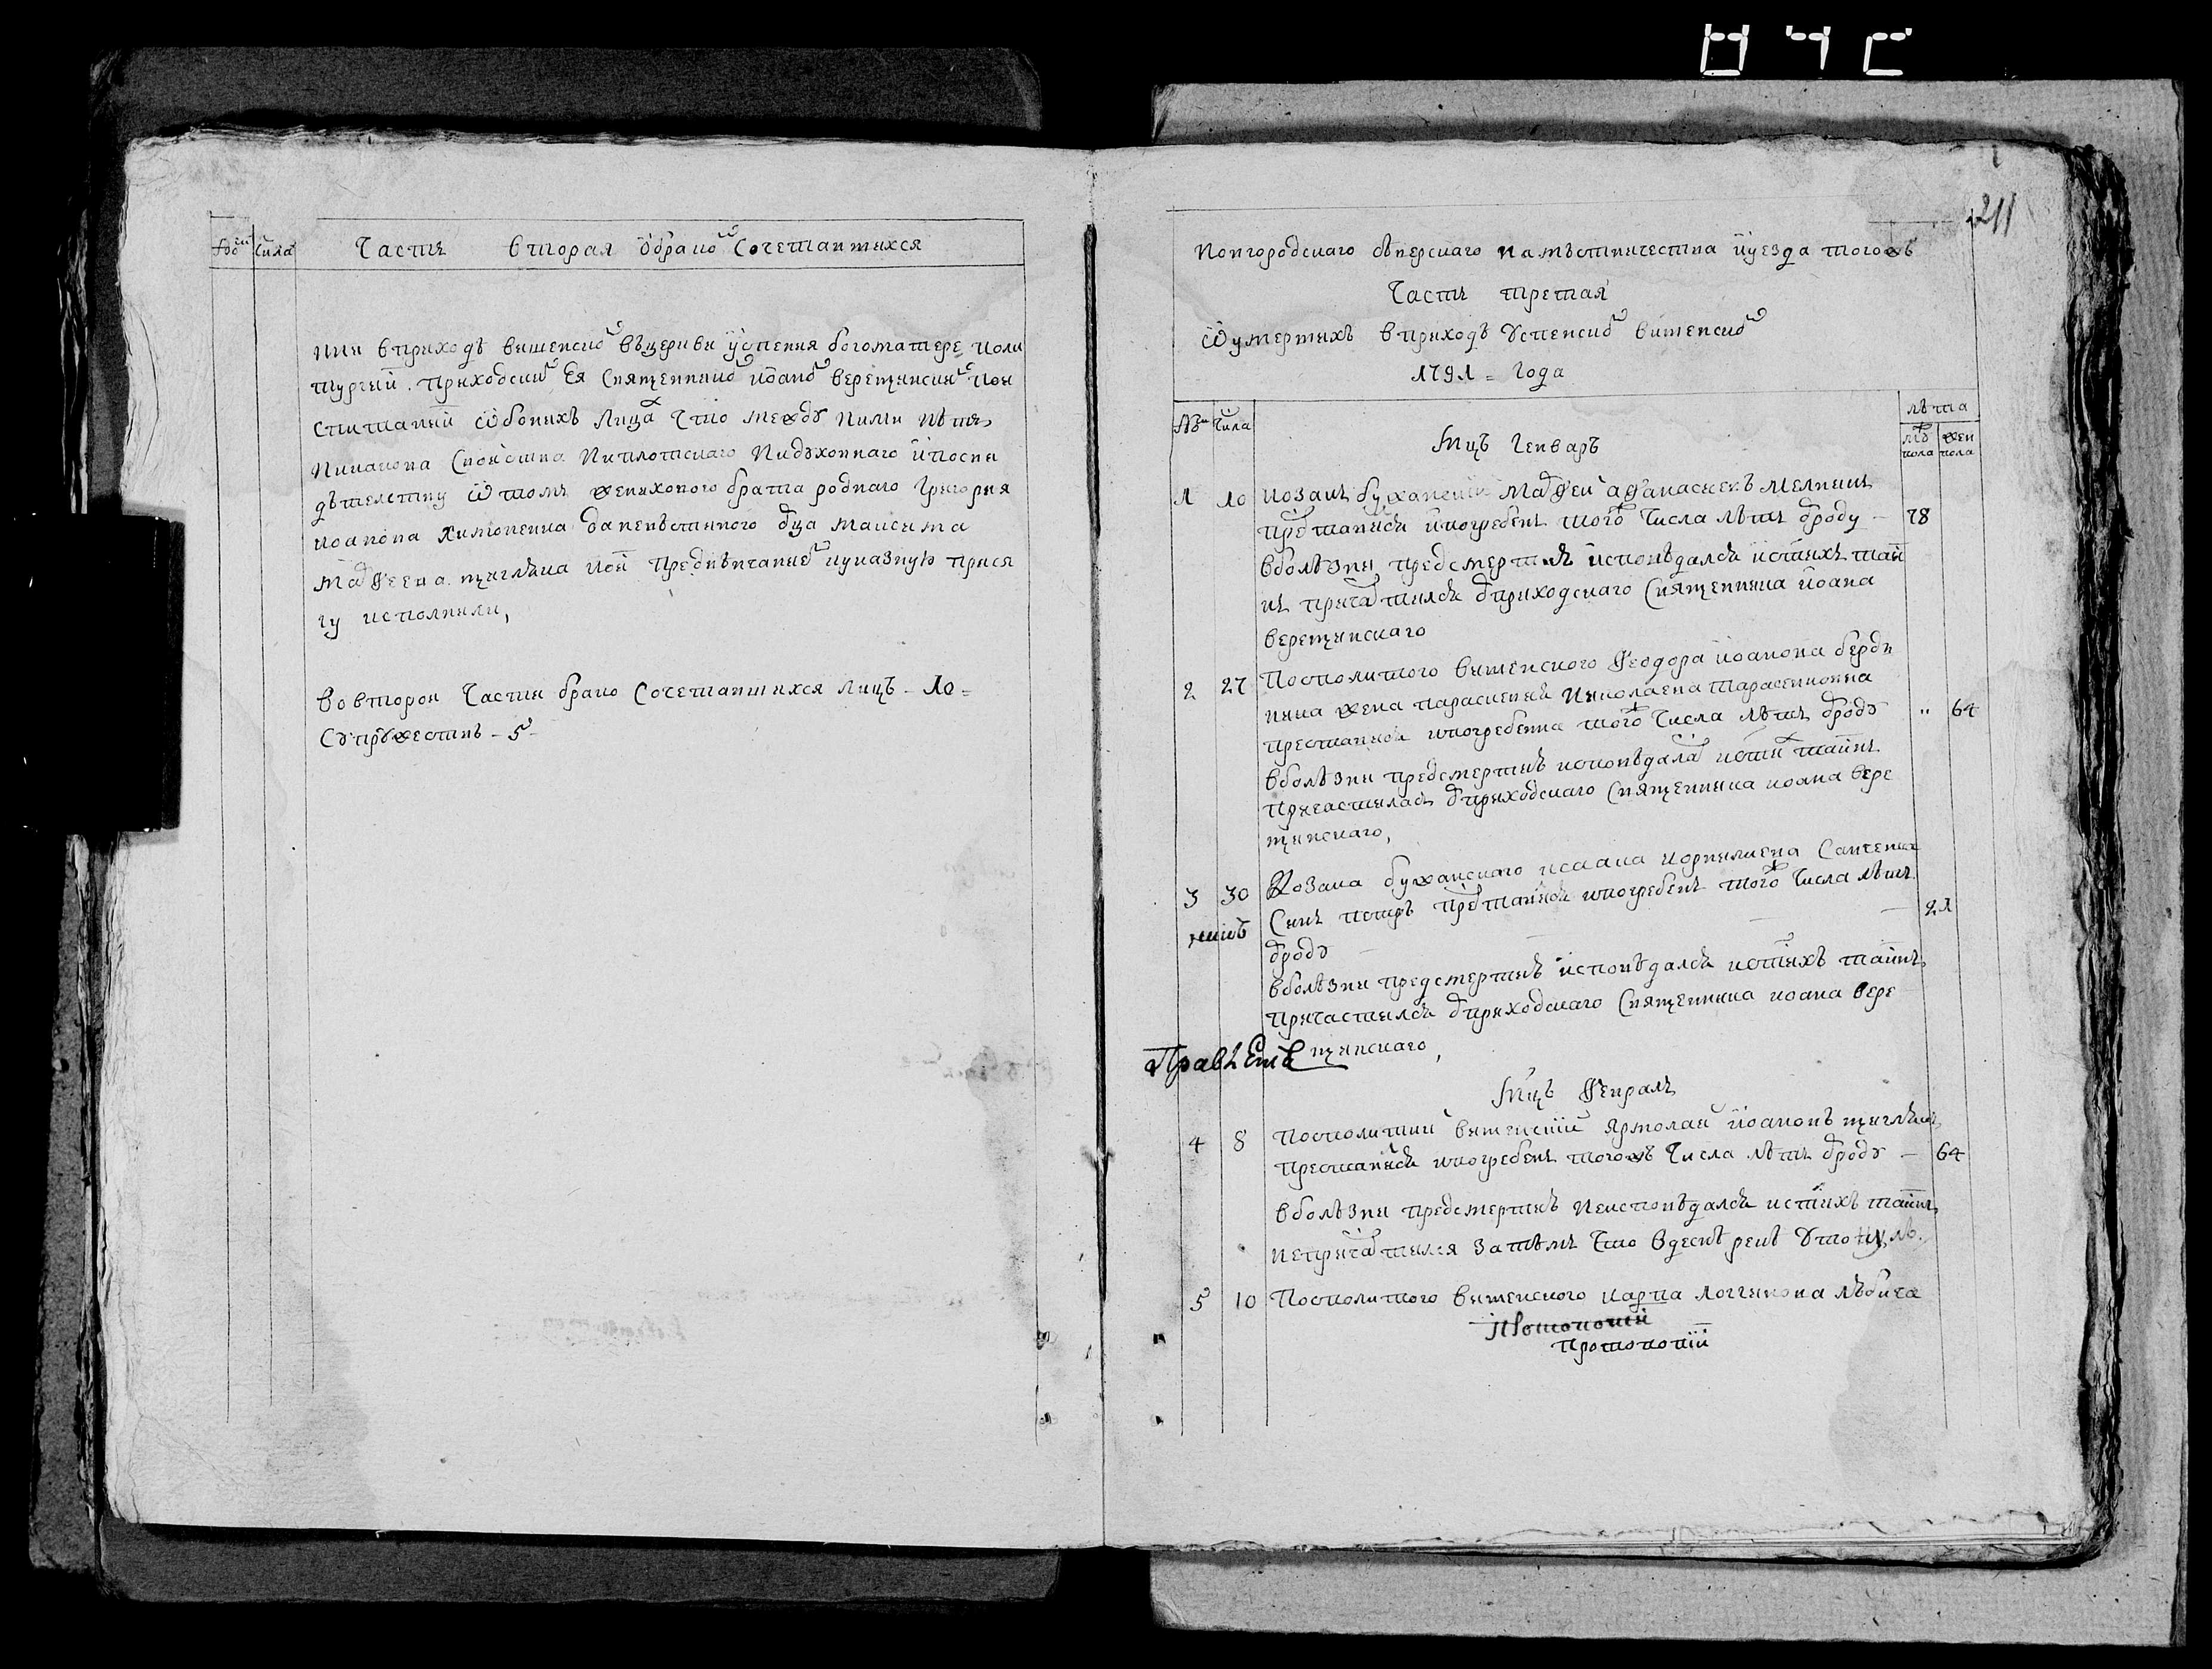 Числа
Часть вторая о брако сочетавшихся
нии в приходѣ вишенско въ церкви успения богоматере по ли
тургии приходским ея священнико иоано верещински по и
спитании обоих лица что между ними нѣтъ
никакова своиства ни плотскаго ни духовнаго и по сви
дѣтелству о том женихового брата роднаго григория
иоанова химоненка да невѣстиного отца максима
мафеева щиглѣка кои пред вѣнчание и указную прися
гу исполнили,
во второи части брако сочетавшихся лицъ - 10 =
супружествъ - 5 -
211
Новгородскаго сѣверскаго намѣстничества и уезда тогожъ
Часть третая
о умерших в приходѣ успенско вишенско
1791 = года
Числа
лѣта
муж пола
жен пола
мцъ генваръ
1 10 козакъ бужанский мафей афанасиевъ мелникъ
преставися и погребенъ того числа лѣтъ от роду - 78
в болѣзни пред смертию исповѣдался и стихъ таи
нъ причастился от приходскаго священника иоана
верещинскаго
2 27 посполитого вишенского феодора иоанова
жена параскевия николаева тарасенковна
преставися и погребенна того числа лѣтъ от роду " 64
в болѣзни пред смертию исповѣдала и сти таинъ
причастилась от приходскаго священника иоана вере
щинскаго,
3 30 козака бужанскаго исаака корнилиева савченка
синъ петръ преставися и погребенъ того числа лѣтъ
от роду - 21
в болѣзни пред смертию исповѣдался и стихъ таинъ
причастился от приходскаго священника иоана вере
щинскаго,
мцъ февралъ
4 8 посполитий вишенский ярмолай иоановъ щиглѣкъ
преставися и погребенъ тогожъ числа лѣтъ от роду - 64
в болѣзни пред смертию не исповѣдался и стихъ таинъ
не причастился за тѣмъ что в деснѣ рекѣ утонулъ.
5 10 посполитого вишенского карпа логгинова лѣбича
протопопий